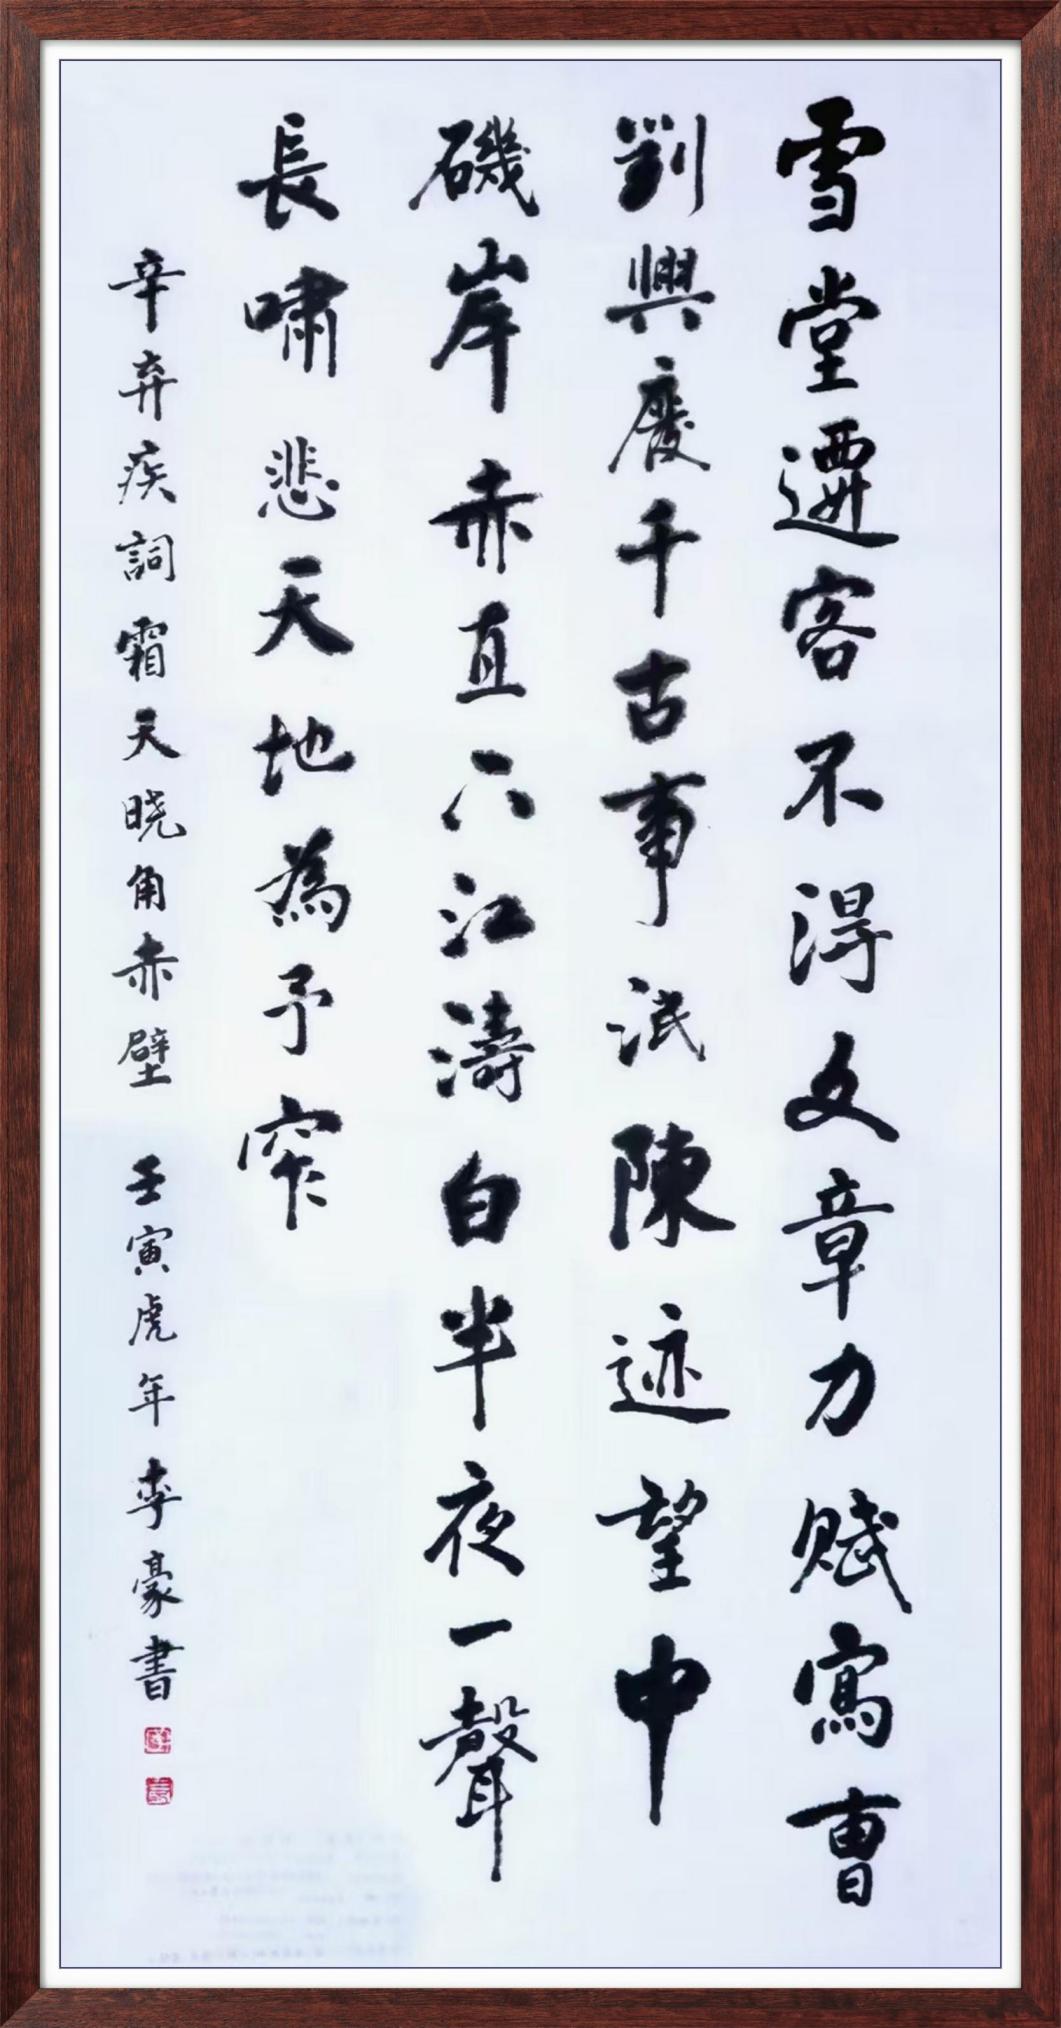 雪堂遷客不得文章力賦寫曹
劉興廢千古事泯陳迹望中
磯岸赤直下江濤白半夜一聲
長嘯悲天地為予窄
辛弃疾詞霜天晓角赤壁 壬寅虎年李豪書